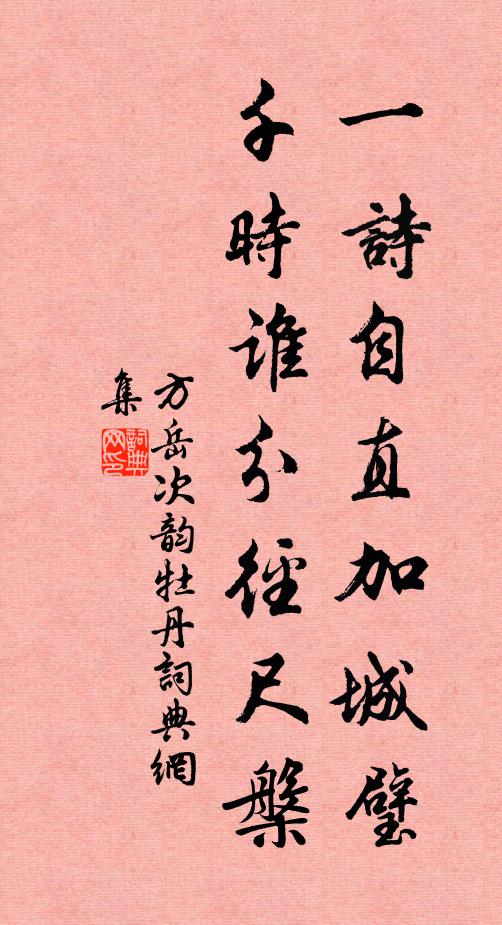 一詩自直加城璧
千時誰分徑尺槃
方岳次韵牡丹詞典網
集
詞典
网印